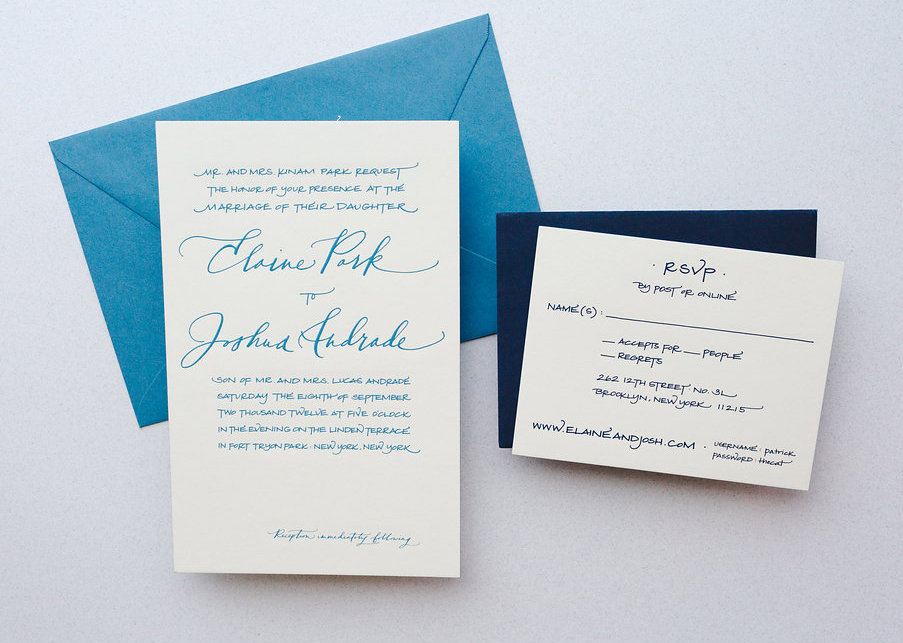 MR. AND MRS. KINAM PARK REQUEST
THE HONOR OF YOUR PRESENCE AT THE
MARRIAGE OF THEIR DAUGHTER
Elaine Park
TO
Joshua Andrade
SON OF MR. AND MRS. LUCAS ANDRADE
SATURDAY THE EIGHTH OF SEPTEMBER
TWO THOUSAND TWELVE AT FIVE O'CLOCK
IN THE EVENING ON THE LINDEN TERRACE
IN FORT TRYON PARK · NEW YORK, NEW YORK
Reception immediately following
· RSVP ·
BY POST OR ONLINE
NAME(S) :
ACCEPTS FOR PEOPLE
REGRETS
262 12TH STREET NO. 3L
BROOKLYN, NEW YORK 11215
WWW.ELAINEANDJOSH.COM · USERNAME: patrick
PASSWORD: thecat